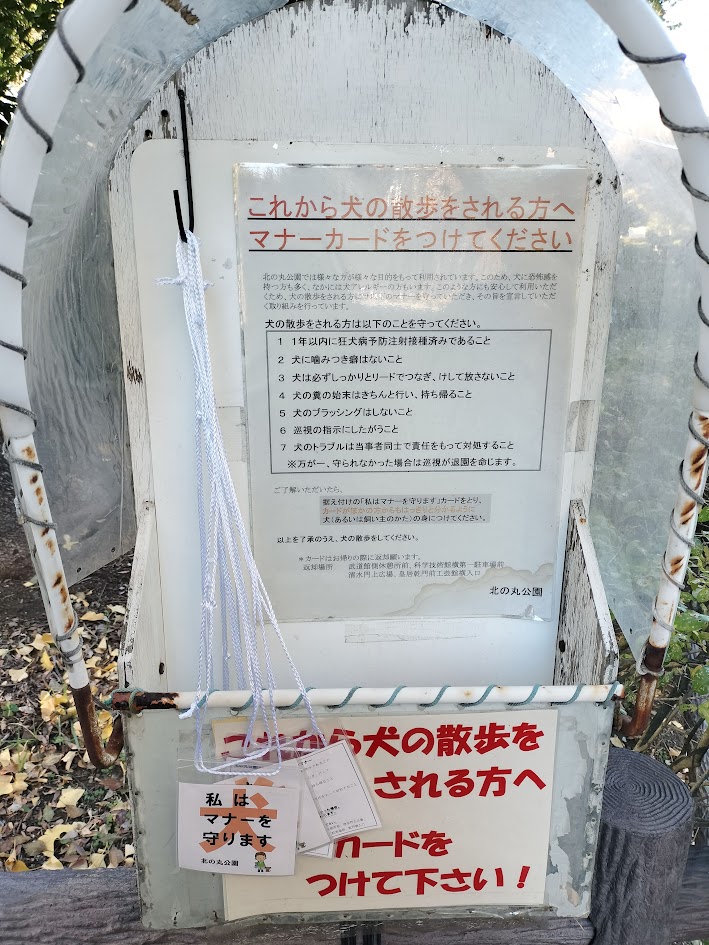 これから犬の散歩をされる方へ
マナーカードをつけてください
北の丸公園では様々な方が様々な目的をもって利用されています。このため、犬に恐怖感を
持つ方も多く、なかには犬アレルギーの方もいます。このような方にも安心して利用いた
だくため、犬の散歩をされる方に以下のマナーを守っていただき、その旨を宣言していただ
く取り組みを行っています。
犬の散歩をされる方は以下のことを守ってください。
1 1年以内に狂犬病予防注射接種済みであること
2 犬に噛みつき癖はないこと
3 犬は必ずしっかりとリードでつなぎ、けして放さないこと
4 犬の糞の始末はきちんと行い、持ち帰ること
5 犬のブラッシングはしないこと
6 巡視の指示にしたがうこと
7 犬のトラブルは当事者同士で責任をもって対処すること
※万が一、守られなかった場合は巡視が退園を命じます。
ご了解いただいたら、
据え付けの「私はマナーを守ります」カードをとり、
カードがほかの方からもはっきりと分かるように
犬(あるいは飼い主のかた)の身につけてください。
以上を了承のうえ、犬の散歩をしてください。
*カードはお帰りの際に返却願います。
返却場所 武道館側休憩所前、科学技術館横第一駐車場前
清水門上広場、皇居乾門前工会館横入口
北の丸公園
これから犬の散歩を
される方へ
カードを
つけて下さい!
犬
私は
マナーを
守ります
北の丸公園